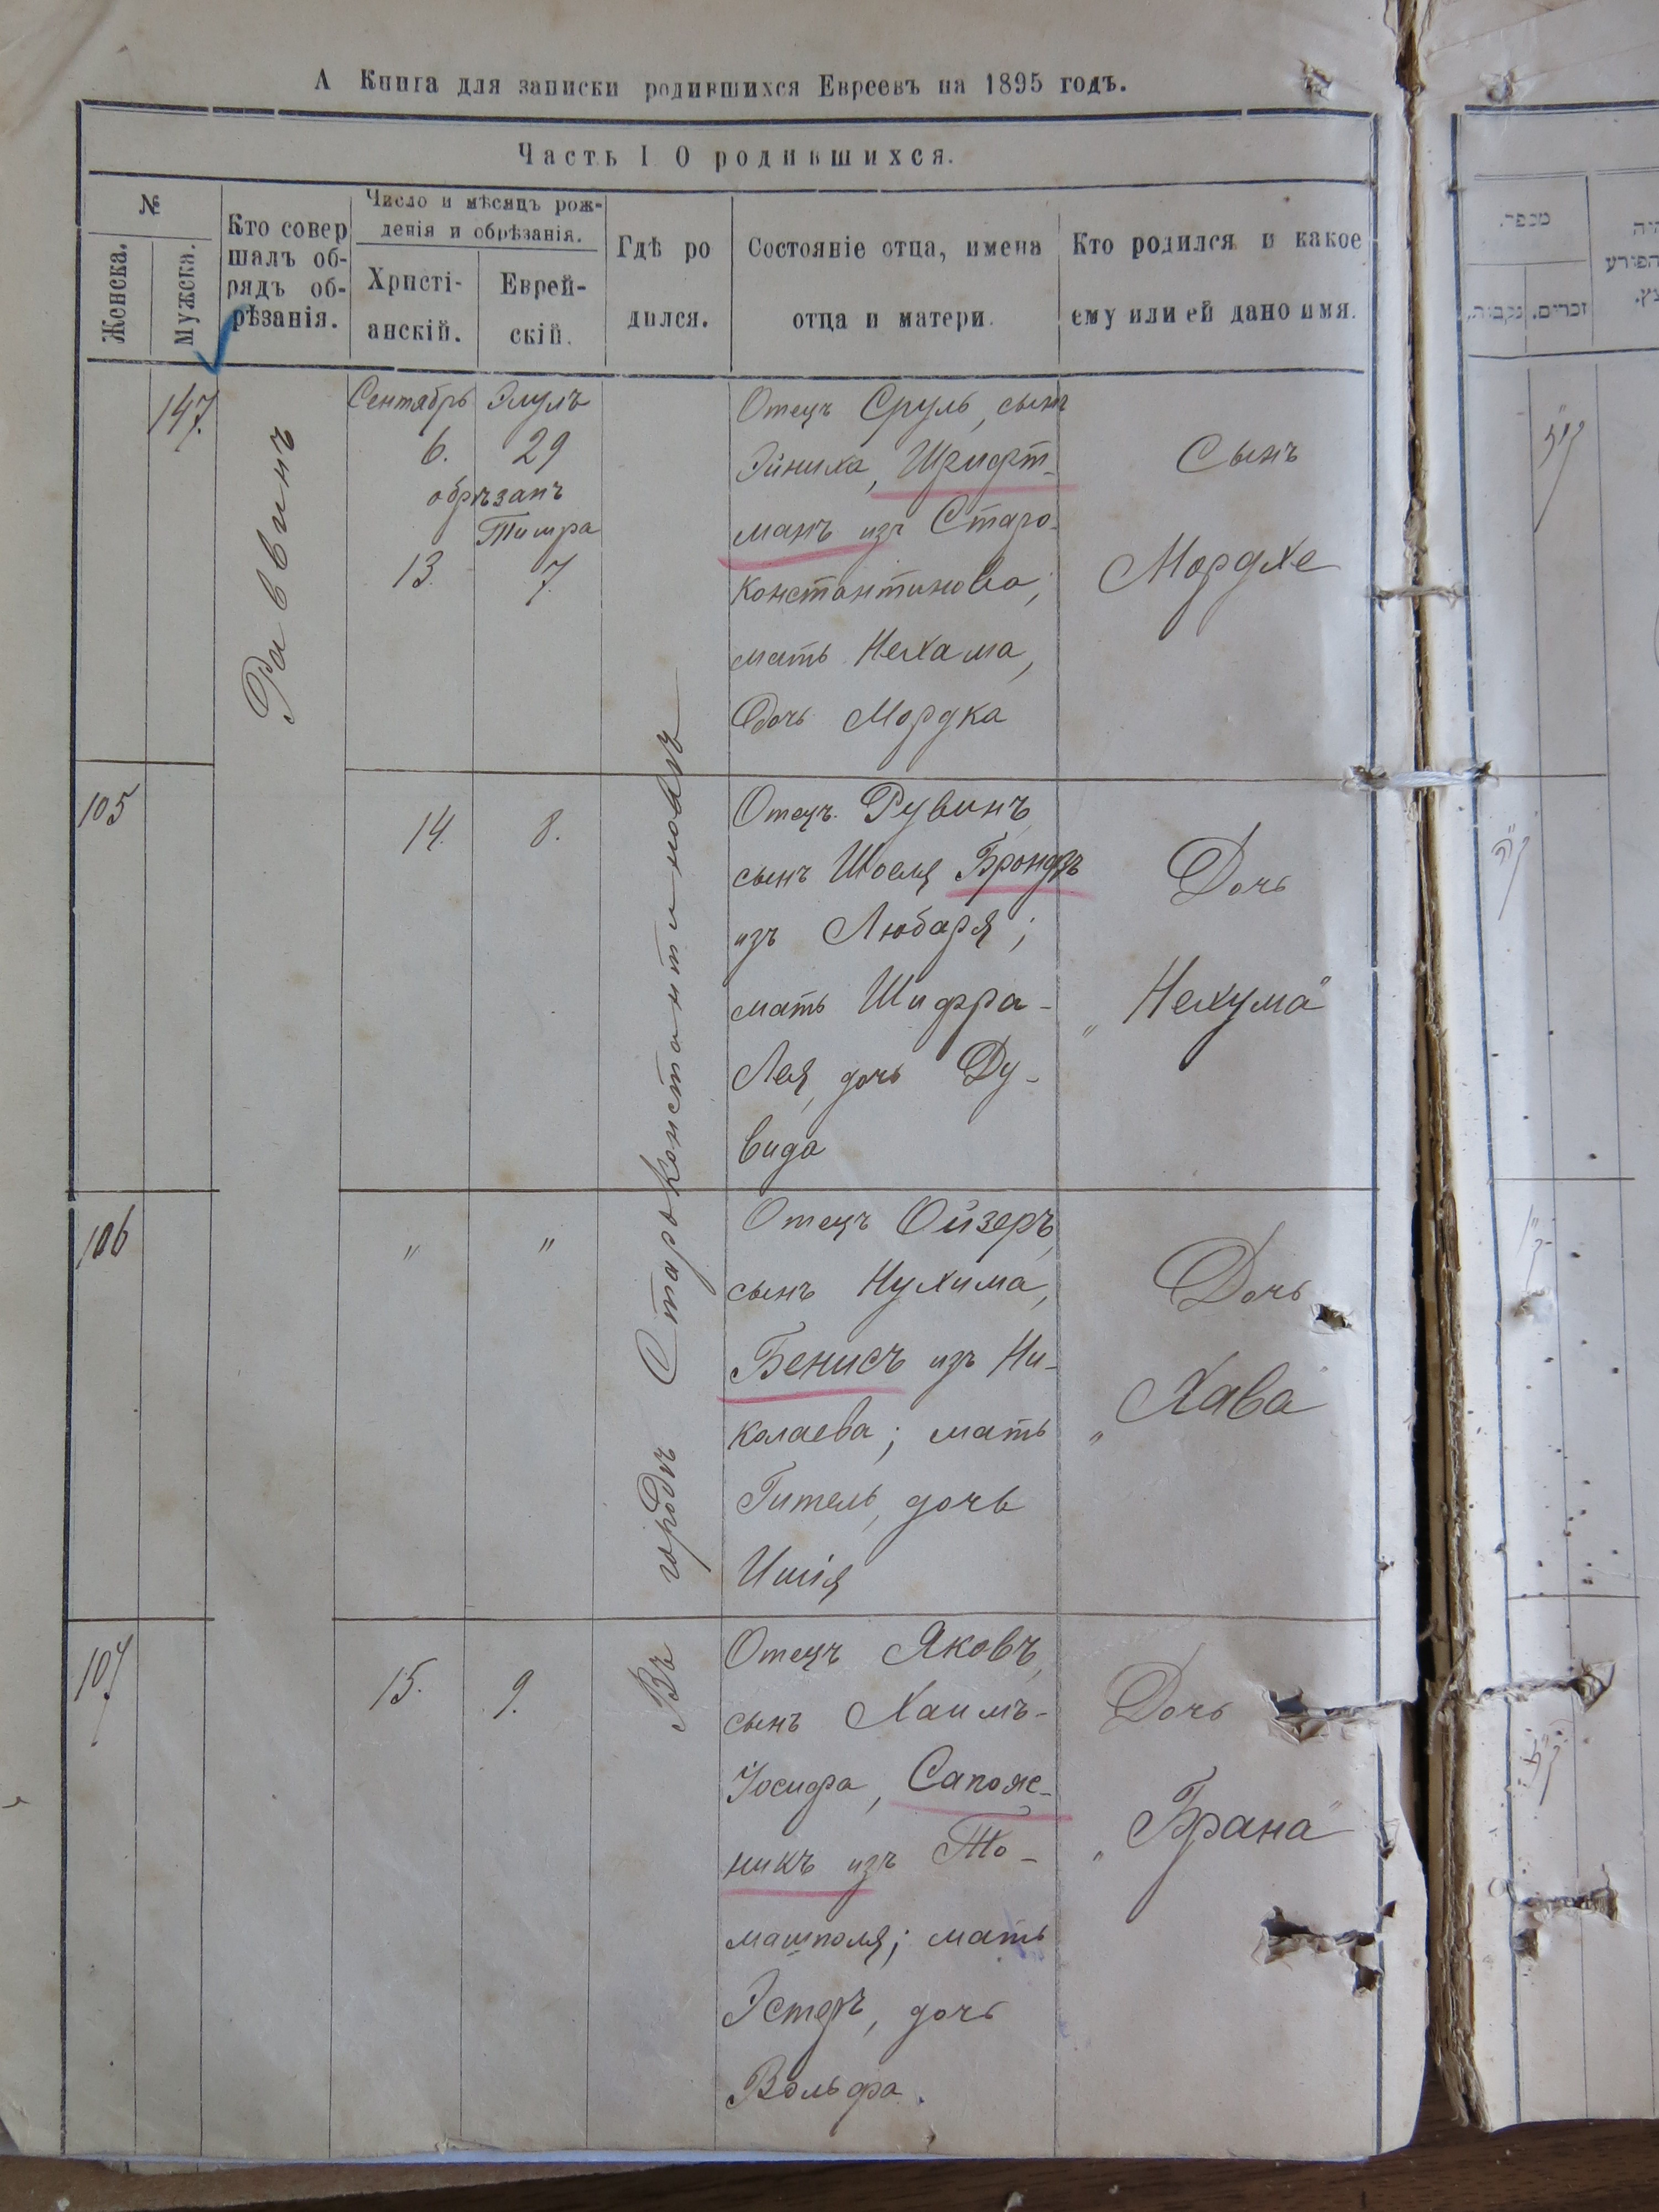 А Книга для записки родившихся Евреевъ на 1895 годъ.
Часть I О родившихся.
№
Женска.
Мужска.
Кто совер
шалъ об-
рядъ об-
рѣзанія.
Число и мѣсяцъ рож-
денія и обрѣзанія.
Христі-
анскій.
Еврей-
скій.
Гдѣ ро
дился.
Состояніе отца, имена
отца и матери.
Кто родился и какое
ему или ей дано имя.
מספר.
זכרים.
נקבות.
147.
Раввинъ
Сентябрь Элулъ
6. 29
обрѣзанъ
Тишра
13. 7.
Въ городѣ Староконстантиновѣ
Отецъ Сруль, сынъ
Эйниха, Шрифт-
манъ изъ Старо-
константинова;
мать Нехама,
дочь Мордка
Сынъ
Мордхе
105
14. 8.
Отецъ Рувинъ,
сынъ Шоеля Брондзъ
изъ Любаря;
мать Шифра-
Лея, дочь Ду-
вида
Дочь
„Нехума"
106
" "
Отецъ Ойзеръ,
сынъ Нухима,
Бенисъ изъ Ни-
колаева; мать
Гитель, дочь
Ишія
Дочь
„Хава"
107
15. 9.
Отецъ Яковъ,
сынъ Хаимъ-
Іосифа, Сапож-
никъ изъ То-
машполя; мать
Эстеръ, дочь
Вольфа.
Дочь
„Брана"